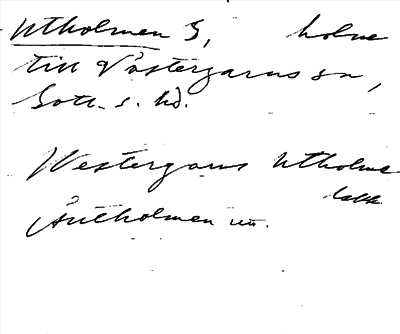 Utholmen S, holme
till Västergarns sn,
Gotl. s. hd.
Westergarns Utholme
Utholmen